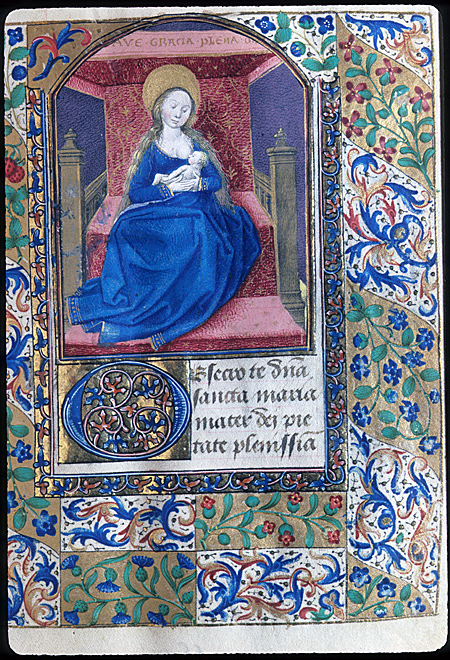 AVE · GRACIA · PLENA
Obsecro te dña
sancta maria
mater dei pie
tate plenissia